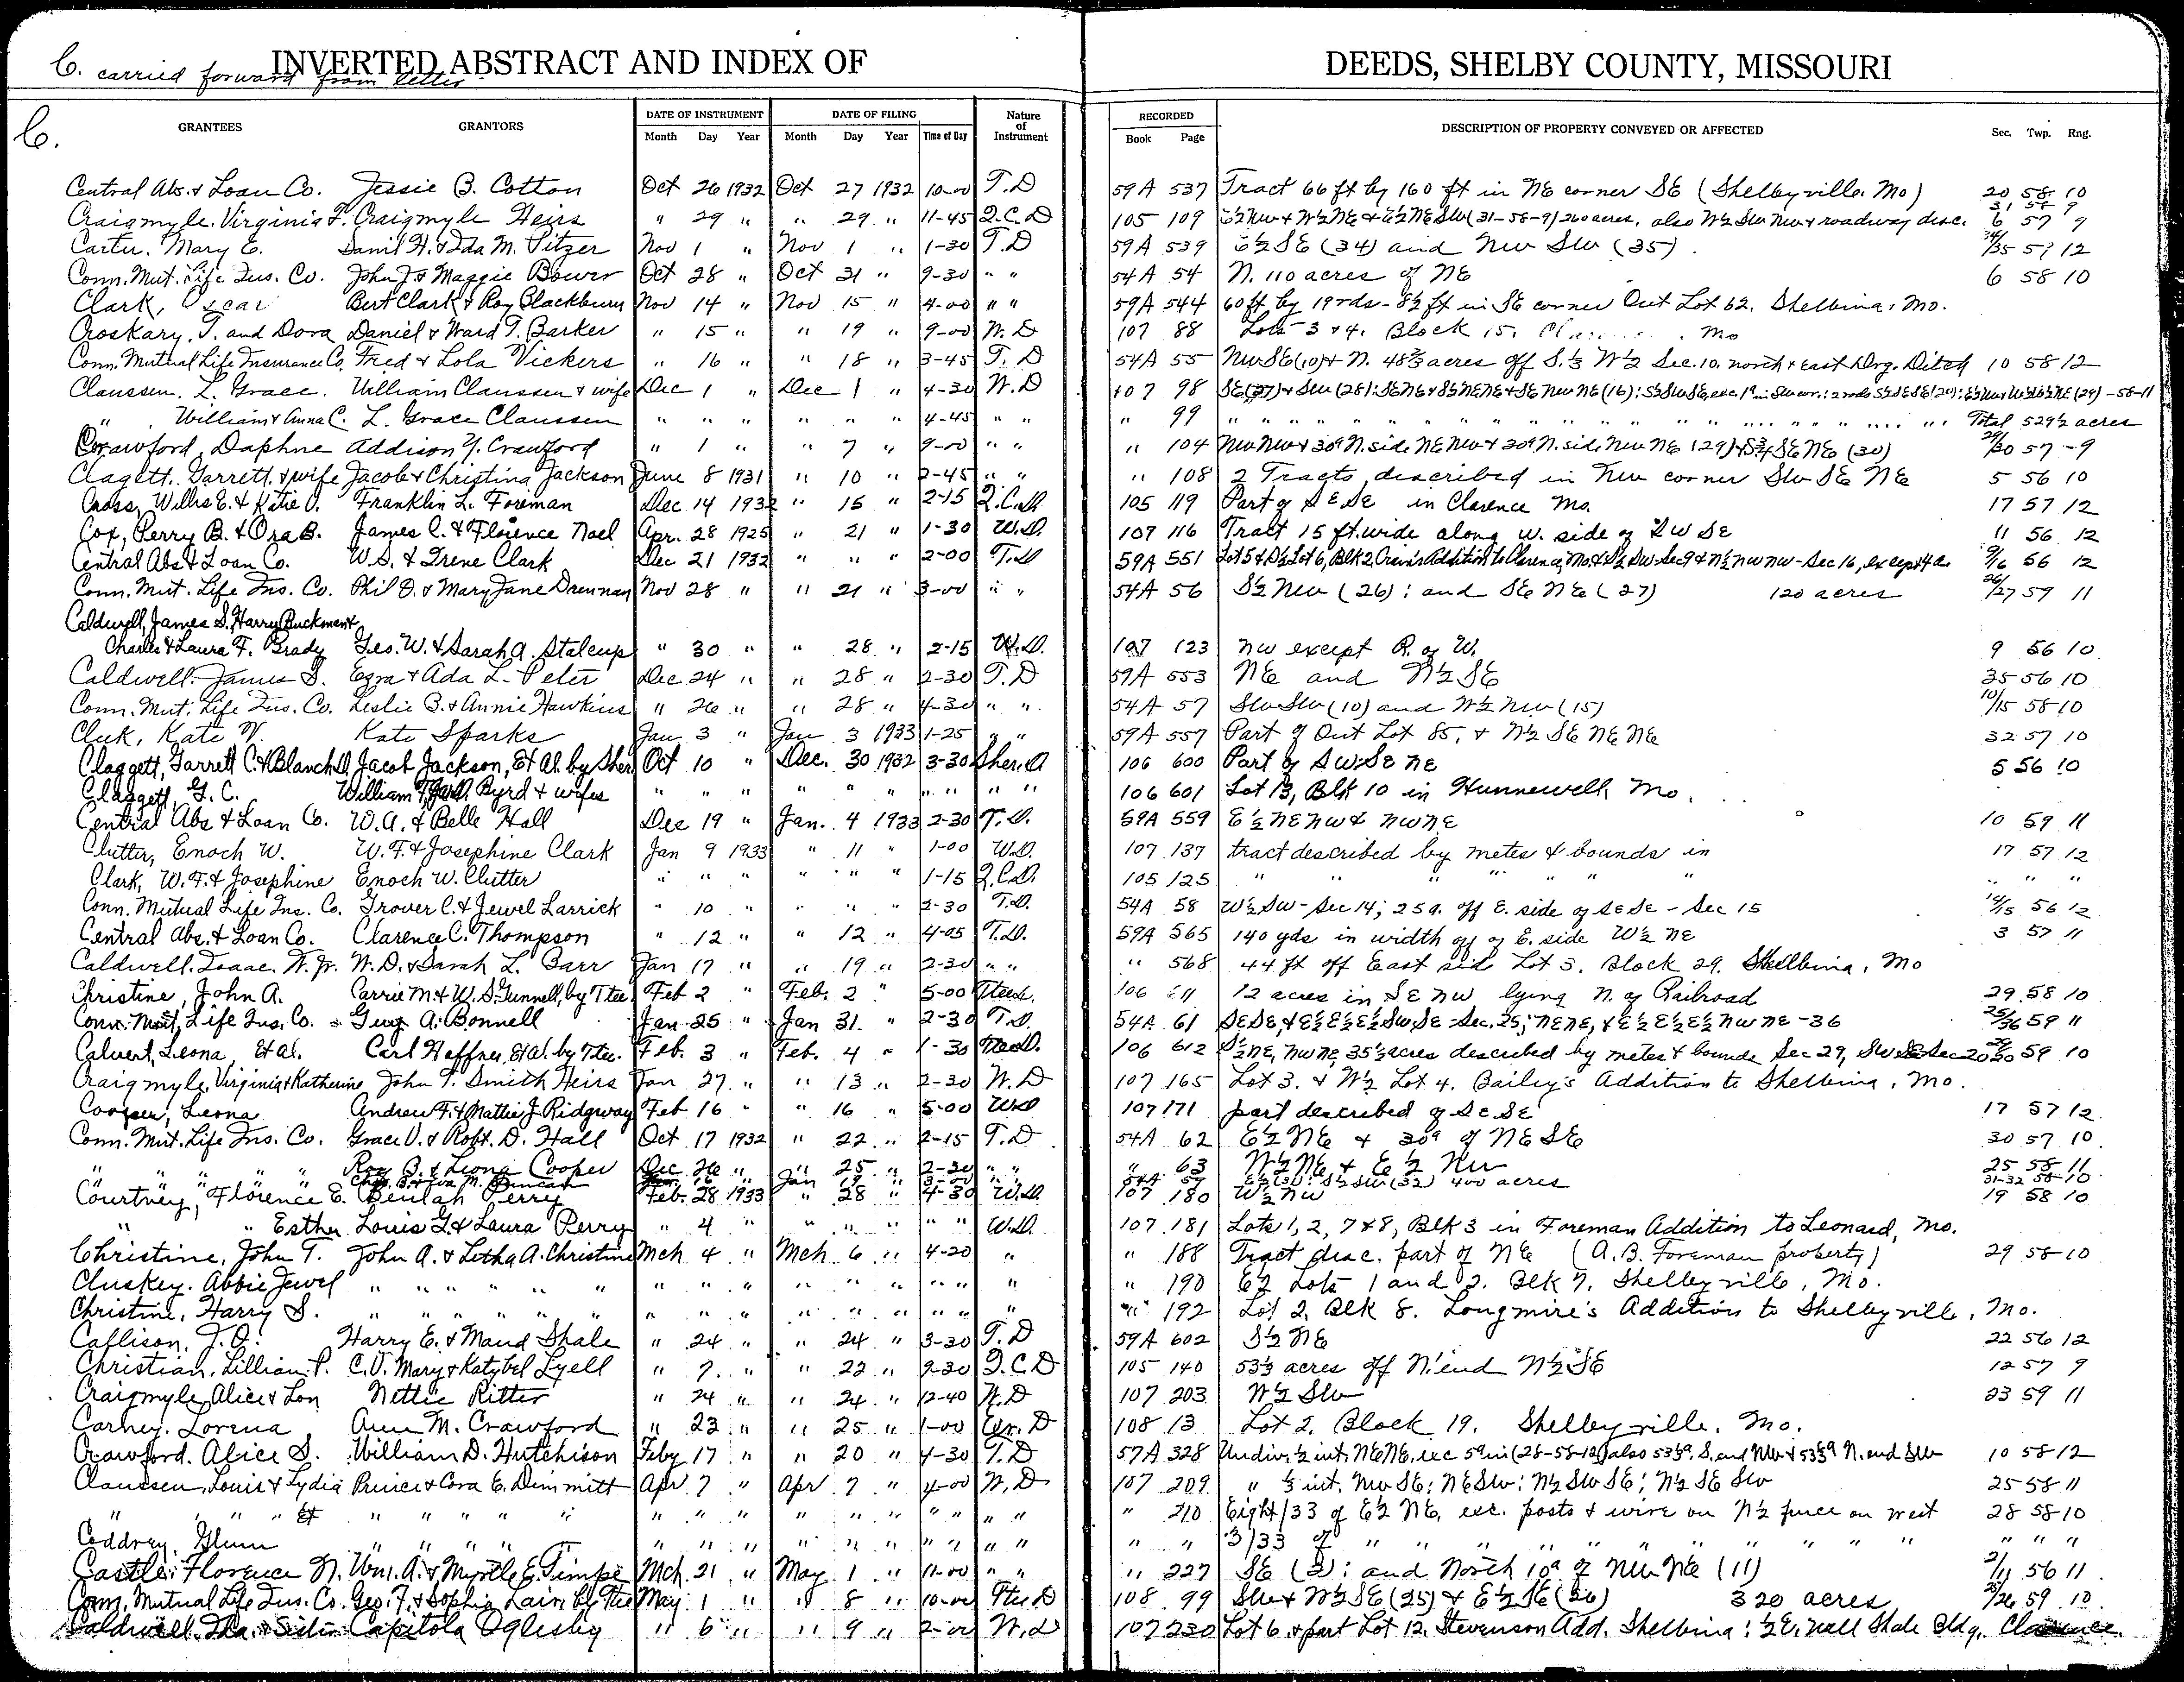 INVERTED ABSTRACT AND INDEX OF DEEDS, SHELBY COUNTY, MISSOURI
C. carried forward from letter
C.
GRANTEES GRANTORS DATE OF INSTRUMENT Month Day Year DATE OF FILING Month Day Year Time of Day Nature of Instrument RECORDED Book Page DESCRIPTION OF PROPERTY CONVEYED OR AFFECTED Sec. Twp. Rng.
Central Abs. & Loan Co. Jessie B. Cotton Oct 26 1932 Oct 27 1932 10-00 T.D 59A 537 Tract 66 ft by 160 ft in NE corner SE (Shelbyville. Mo) 20 58 10
Craigmyle, Virginia F. Craigmyle Heirs " 29 " " 29 " 11-45 Q.C.D 105 109 E½ NW & W½ NE & E½ NE SW (31-58-9) 260 acres, also W½ SW NW & roadway desc. 31 58 9 6 57 9
Carter. Mary E. Daniel H. & Ida M. Pitzer Nov 1 " Nov 1 " 1-30 T.D 59A 539 E½ SE (34) and NW SW (35) 34/35 57 12
Conn. Mut. Life Ins. Co. John J & Maggie Bower Oct 28 " Oct 31 " 9-30 " " 54A 54 N. 110 acres of NE 6 58 10
Clark, Oscar Bert Clark & Roy Blackburn Nov 14 " Nov 15 " 4-00 " " 59A 544 60 ft by 19 rds - 8½ ft in SE corner Out Lot 62. Shelbina, Mo.
Croskary, T. and Dora Daniel & Ward T. Barker " 15 " " 19 " 9-00 W. D 107 88 Lots 3 & 4. Block 15. Mo
Conn. Mutual Life Insurance Co. Fred & Lola Vickers " 16 " " 18 " 3-45 T. D 54A 55 NW SE (10) & N. 48⅔ acres off S.⅓ W½ Sec. 10. north & east Drg. Ditch 10 58 12
Claussen. L. Grace. William Claussen & wife Dec 1 " Dec 1 " 4-30 W. D 107 98 SE (27) & SW (28): SE NE & S½ NE NE & SE NW NE (16): -58-11
" William & Anna C. L. Grace Claussen " " " " " " 4-45 " " " 99 " " " " Total 529½ acres
Crawford, Daphne Addison Y. Crawford " 1 " " 7 " 9-00 " " " 104 NW NW & 30a N. side NE NW & 20a N. side NW NE (29) & S¾ SE NE (30) 29/30 57 -9
Clagett. Garrett. & wife Jacob & Christina Jackson June 8 1931 " 10 " 2-45 " " " 108 2 Tracts described in NW corner SW SE NE 5 56 10
Cross, Willis E. & Katie V. Franklin L. Foreman Dec. 14 1932 " 15 " 2-15 Q.C.D. 105 119 Part of SE SE in Clarence Mo. 17 57 12
Cox, Perry B. & Ora B. James C. & Florence Noel Apr. 28 1925 " 21 " 1-30 W.D. 107 116 Tract 15 ft. wide along W. side of SW SE 11 56 12
Central Abs & Loan Co. W.S. & Irene Clark Dec 21 1932 " " " 2-00 T.D 59A 551 Lot 5 & S½ Lot 6, Blk 2, Addition to Clarence, Mo. & S½ SW - Sec 9 & N½ NW NW - Sec 16, except 4 a. 9/16 56 12
Conn. Mut. Life Ins. Co. Phil O. & Mary Jane Drennan Nov 28 " " 21 " 3-00 " " 54A 56 S½ NW (26): and SE NE (27) 120 acres 26/27 59 11
Caldwell, James S., Harry Buckman &
Charles & Laura F. Brady Geo. W. & Sarah A. Stalcup " 30 " " 28 " 2-15 W.D. 107 123 NW except R. of W. 9 56 10
Caldwell. James S. Ezra & Ada L. Peter Dec 24 " " 28 " 2-30 T. D 59A 553 NE and N½ SE 35 56 10
Conn. Mut. Life Ins. Co. Leslie B. & Annie Hawkins " 26 " " 28 " 4-30 " " 54A 57 SW SW (10) and W½ NW (15) 10/15 58 10
Cluk, Kate N. Kate Sparks Jan 3 " Jan 3 1933 1-25 " " 59A 557 Part of Out Lot 85, & N½ SE NE NE 32 57 10
Claggett, Garrett C. & Blanch D. Jacob Jackson, Et Al. by Sher. Oct 10 " Dec. 30 1932 3-30 Sher. D 106 600 Part of SW SE NE 5 56 10
Claggett, G. C. William Byrd & wife " " " " " " " " " " 106 601 Lot 13, Blk 10 in Hunnewell, Mo.
Central Abs & Loan Co. W.A. & Belle Hall Dec 19 " Jan. 4 1933 2-30 T.D. 59A 559 E½ NE NW & NW NE 10 59 11
Clutter, Enoch W. W.F. & Josephine Clark Jan 9 1933 " 11 " 1-00 W.D. 107 137 tract described by metes & bounds in 17 57 12
Clark, W.F. & Josephine Enoch W. Clutter " " " " " " 1-15 Q.C.D. 105 125 " " " " " " " " " "
Conn. Mutual Life Ins. Co. Grover C. & Jewel Larrick " 10 " " " 2-30 T.D. 54A 58 W½ SW - Sec 14; 25 a. off E. side of SE SE - Sec 15 14/15 56 12
Central Abs. & Loan Co. Clarence C. Thompson " 12 " " 12 " 4-05 T.D. 59A 565 140 yds in width off of E. side W½ NE 3 57 11
Caldwell. Isaac. W. Jr. W. D. & Sarah L. Barr Jan 17 " " 19 " 2-30 " " " 568 44 ft off East sid Lot 3. Block 29. Shelbina, Mo
Christine, John A. Carrie M. & W. S. Gunnell, by Ttee. Feb 2 " Feb. 2 " 5-00 Ttees. 106 611 12 acres in SE NW lying N. of Railroad 29 58 10
Conn. Mut. Life Ins. Co. A. Bonnell Jan 25 " Jan 31 " 2-30 T.D. 54A 61 SE SE, & E½ E½ E½ SW SE - Sec. 25; NE NE, & E½ E½ E½ NW NE - 36 25/36 59 11
Calvert, Leona, Et al. Carl Heffner, Et al. by Ttee. Feb. 3 " Feb. 4 " 1-30 106 612 S½ NE, NW NE, 35½ acres described by metes & bounds Sec 29, SW SE Sec 20 59 10
Craigmyle, Virginia & Katherine John T. Smith Heirs Jan 27 " " 13 " 2-30 W. D 107 165 Lot 3. & W½ Lot 4. Bailey's Addition to Shelbina, Mo.
Cooper, Leona Andrew F. & Mattie J. Ridgway Feb. 16 " " 16 " 5-00 WD 107 171 part described of SE SE 17 57 12
Conn. Mut. Life Ins. Co. Grace V. & Robt. D. Hall Oct 17 1932 " 22 " 2-15 T.D 54A 62 E½ NE & 30a of NE SE 30 57 10
" " " " " Roy B. & Leona Cooper Dec 26 " " 25 " 2-30 " " " 63 W½ NE & E½ NW 25 58 11
Jan 19 " 3-00 54A 59 E½ (31): S½ SW (32) 400 acres 31-32 58 10
Courtney, Florence E. Beulah Perry Feb. 28 1933 " 28 " 4-30 W.D. 107 180 W½ NW 19 58 10
" " Esther Louis G. & Laura Perry " 4 " " " " " " W.D. 107 181 Lots 1, 2, 7 & 8, Blk 3 in Foreman Addition to Leonard, Mo.
Christine, John T. John A. & Letha A. Christine Mch 4 " Mch 6 " 4-20 " " 188 Tract desc. part of NE (A.B. Foreman property) 29 58 10
Cluskey. Abbie Jewel " " " " " " " " " " " " " " " " 190 E½ Lots 1 and 2. Blk 7, Shelbyville, Mo.
Christine, Harry S. " " " " " " " " " " " " " " " " 192 Lot 2, Blk 8. Longmire's Addition to Shelbyville, Mo.
Callison, J. O. Harry E. & Maud Shale " 24 " " 24 " 3-30 T. D 59A 602 S½ NE 22 56 12
Christian, Lillian P. C. V. Mary & Katybel Lyell " 7 " " 22 " 9-30 Q.C.D 105 140 53⅓ acres off N. end N½ SE 12 57 9
Craigmyle, Alice & Lon Nettie Ritter " 24 " " 24 " 12-40 W. D 107 203 W½ SW 23 59 11
Carney. Lorena Ann M. Crawford " 23 " " 25 " 1-00 Wr. D 108 13 Lot 2. Block 19. Shelbyville. Mo.
Crawford. Alice S. William D. Hutchison Feby 17 " " 20 " 4-30 T. D 57A 328 Undiv. ½ int. NE NE, exc 5a in (28-58-12) also 53⅓a. S. end NW & 53⅓a N. end SW 10 58 12
Claussen, Louis & Lydia Prince & Cora E. Dimmitt Apr 7 " Apr 7 " 4-00 W. D 107 209 " ⅓ int. NW SE; NE SW; N½ SW SE; N½ SE SW 25 58 11
" " " " Et " " " " " " " " " " " " " " " 210 Eight/33 of E½ NE, exc. posts & wire on N½ fence on west 28 58 10
Coddrey, Glenn " " " " " " " " " " " " " " " " 3/33 of " " " " " " " " " "
Castle. Florence N. Wm. A. & Myrtle E. Timpe Mch. 21 " May 1 " 11-00 " " " 227 SE (2): and North 10a of NW NE (11) 2/11 56 11
Conn. Mutual Life Ins. Co. Geo. F. & Sophia Lair by Ttee May 1 " " 8 " 10-00 Ttee D 108 99 SW & W½ SE (25) & E½ SE (26) 320 acres 25/26 59 10
Caldwell. Ida. & Sister Capitola Oglesby " 6 " " 9 " 2-00 W. D 107 230 Lot 6 & part Lot 12. Stevenson Add. Shelbina: ½ E. wall Shale Bldg. Clarence.